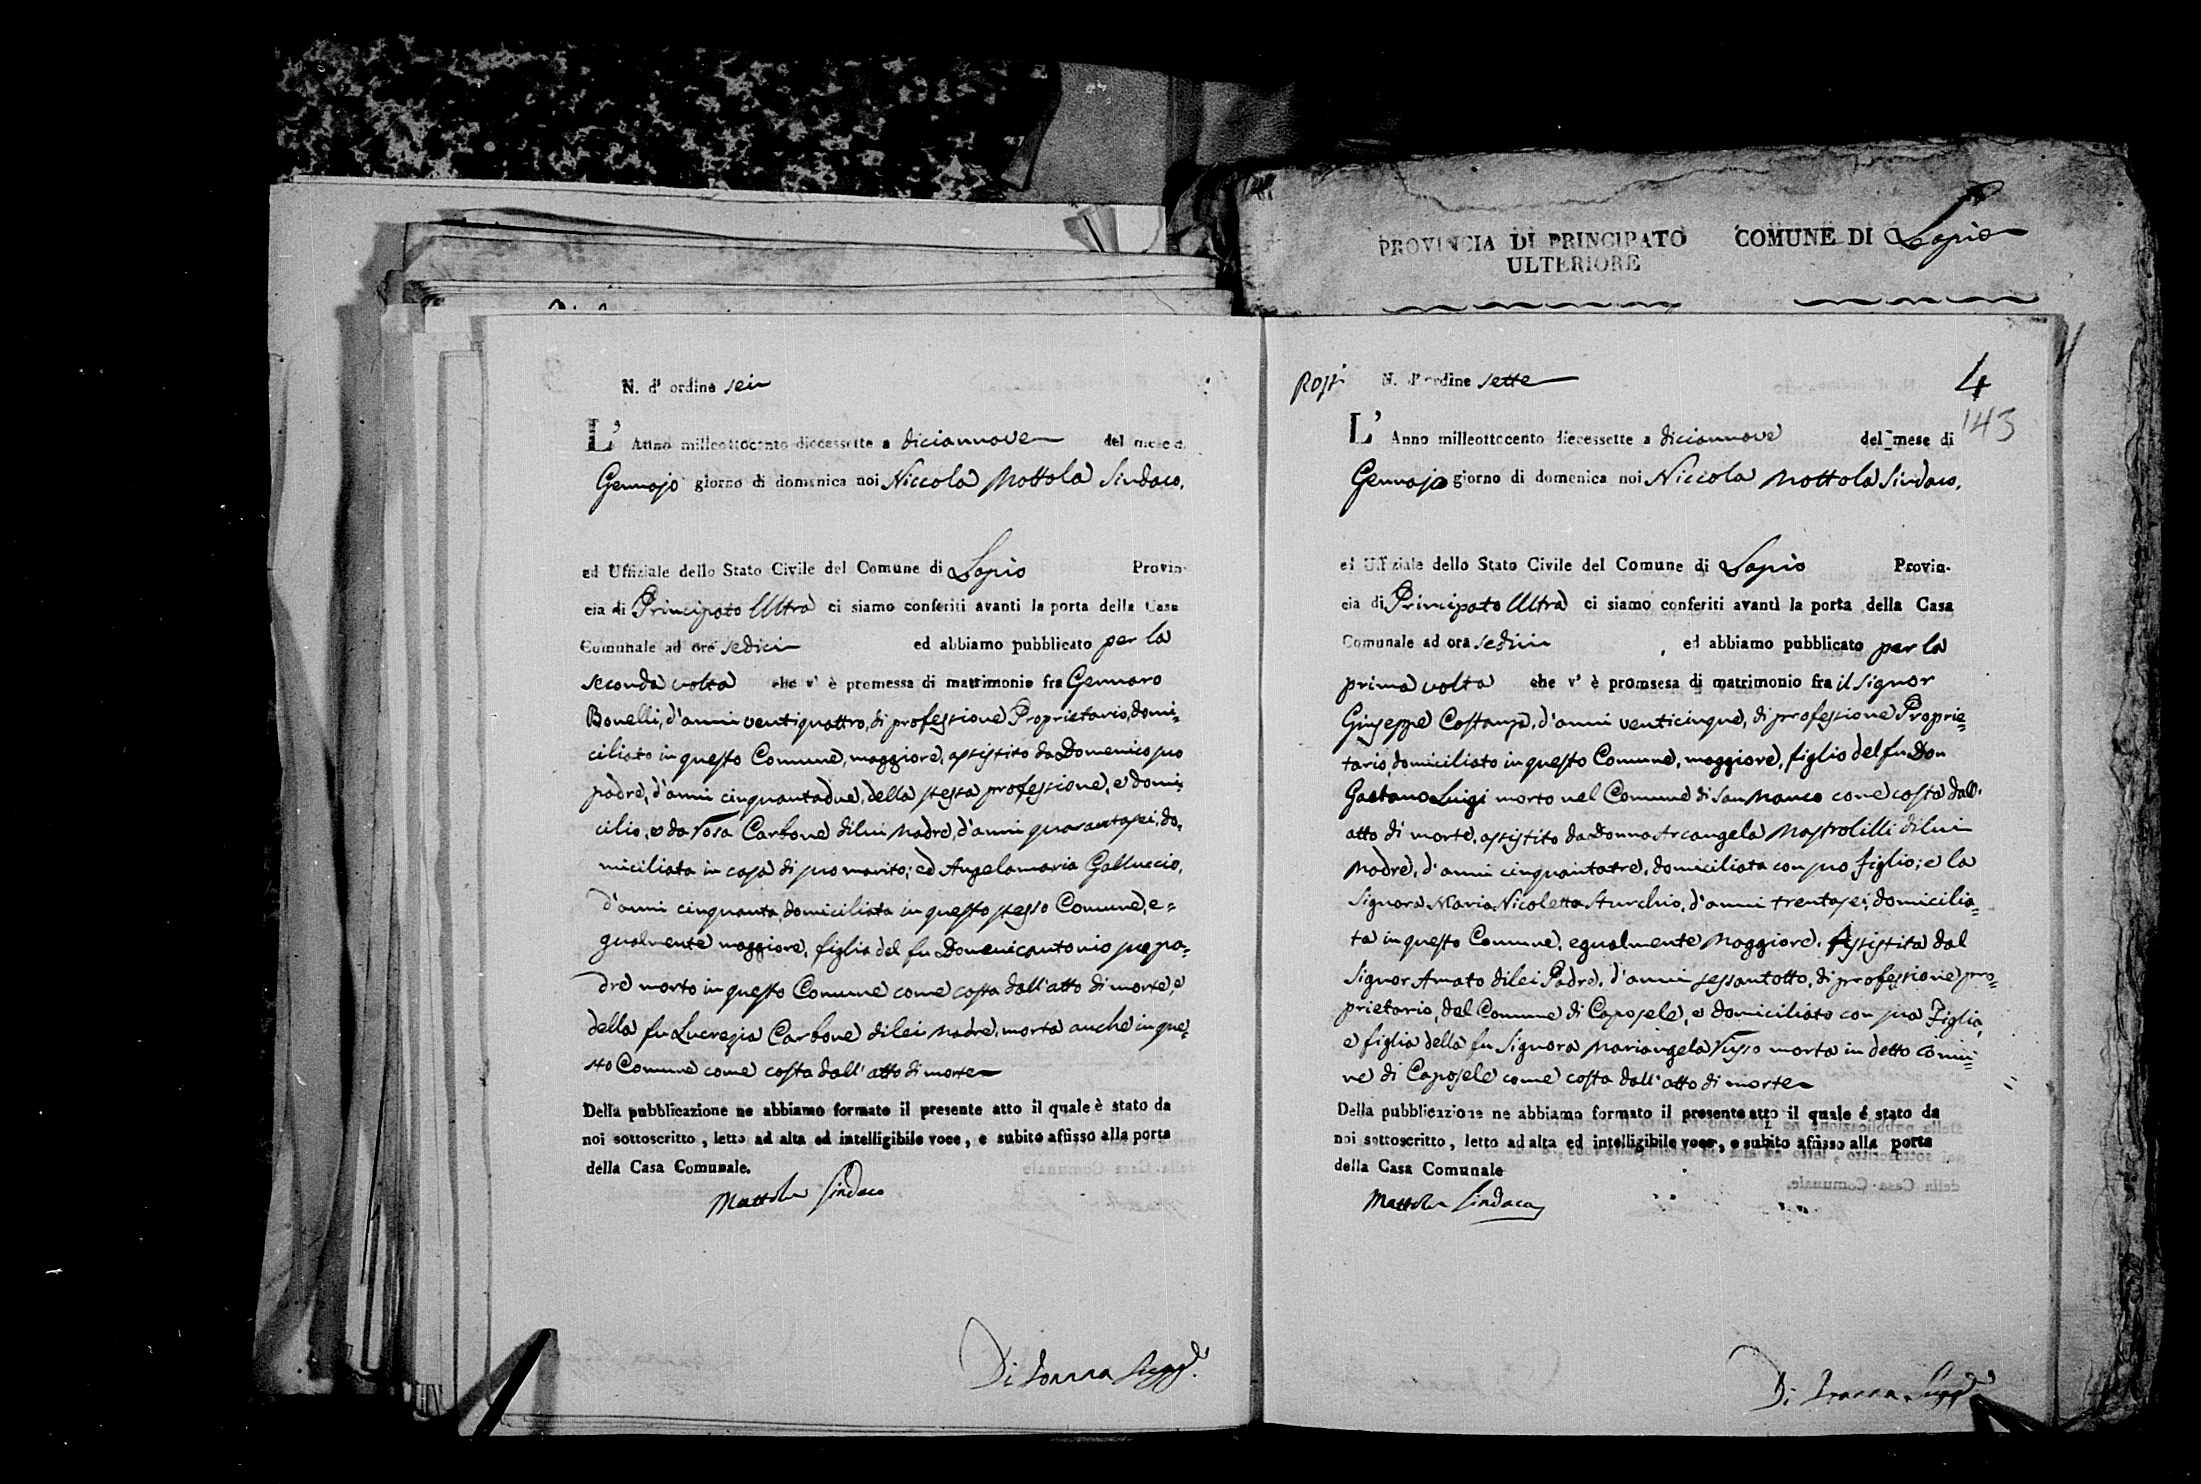 PROVINCIA DI PRINCIPATO
ULTERIORE
COMUNE DI Lapio
N. d' ordine sei
L' Anno milleottocento diecessette a diciannove del mese di
Gennajo giorno di domenica noi Niccola Mottola Sindaco,
ed Uffiziale dello Stato Civile del Comune di Lapio Provin-
cia di Principato Ultra ci siamo conferiti avanti la porta della Casa
Comunale ad ore sedici ed abbiamo pubblicato per la
seconda volta che v' è promessa di matrimonio fra Gennaro
Bonelli, d'anni ventiquattro, di professione Proprietario, domi=
ciliato in questo Comune, maggiore, assistito da Domenico suo
padre, d'anni cinquantadue, della stessa professione, e domi=
cilio, e da Rosa Carbone di lui Madre, d'anni quarantasei, do=
miciliata in casa di suo marito; ed Angelamaria Galluccio,
d'anni cinquanta, domiciliata in questo stesso Comune, e=
gualmente maggiore, figlia del fu Domenicantonio suo pa=
dre morto in questo Comune come costa dall'atto di morte, e
della fu Lucrezia Carbone di lei Madre, morta anche in que=
sto Comune come costa dall'atto di morte
Della pubblicazione ne abbiamo formato il presente atto il quale è stato da
noi sottoscritto, letto ad alta ed intelligibile voce, e subito affisso alla porta
della Casa Comunale.
Mottola Sindaco
N. d'ordine sette
4
143
L' Anno milleottocento diecessette a diciannove del mese di
Gennajo giorno di domenica noi Niccola Mottola Sindaco,
ed Uffiziale dello Stato Civile del Comune di Lapio Provin-
cia di Principato Ultra ci siamo conferiti avanti la porta della Casa
Comunale ad ora sedici ed abbiamo pubblicato per la
prima volta che v' è promsesa di matrimonio fra il Signor
Giuseppe Costanza, d'anni venticinque, di professione Proprie=
tario, domiciliato in questo Comune, maggiore, figlio del fu Don
Gaetano Luigi morto nel Comune di San Manco come costa dall'
atto di morte, assistito da Donna Arcangela Mastrolilli di lui
Madre, d'anni cinquantatre, domiciliata con suo figlio; e la
Signora Maria Nicoletta Sturchio, d'anni trentasei, domicilia=
ta in questo Comune, egualmente Maggiore, Assistita dal
Signor Amato di lei Padre, d'anni sessantotto, di professione pro=
prietario, del Comune di Caposele, e domiciliato con sua Figlia,
e figlia della fu Signora Mariangela Russo morta in detto Comu=
ne di Caposele come costa dall'atto di morte
Della pubblicazione ne abbiamo formato il presente atto il quale è stato da
noi sottoscritto, letto ad alta ed intelligibile voce, e subito affisso alla porta
della Casa Comunale
Mottola Sindaco